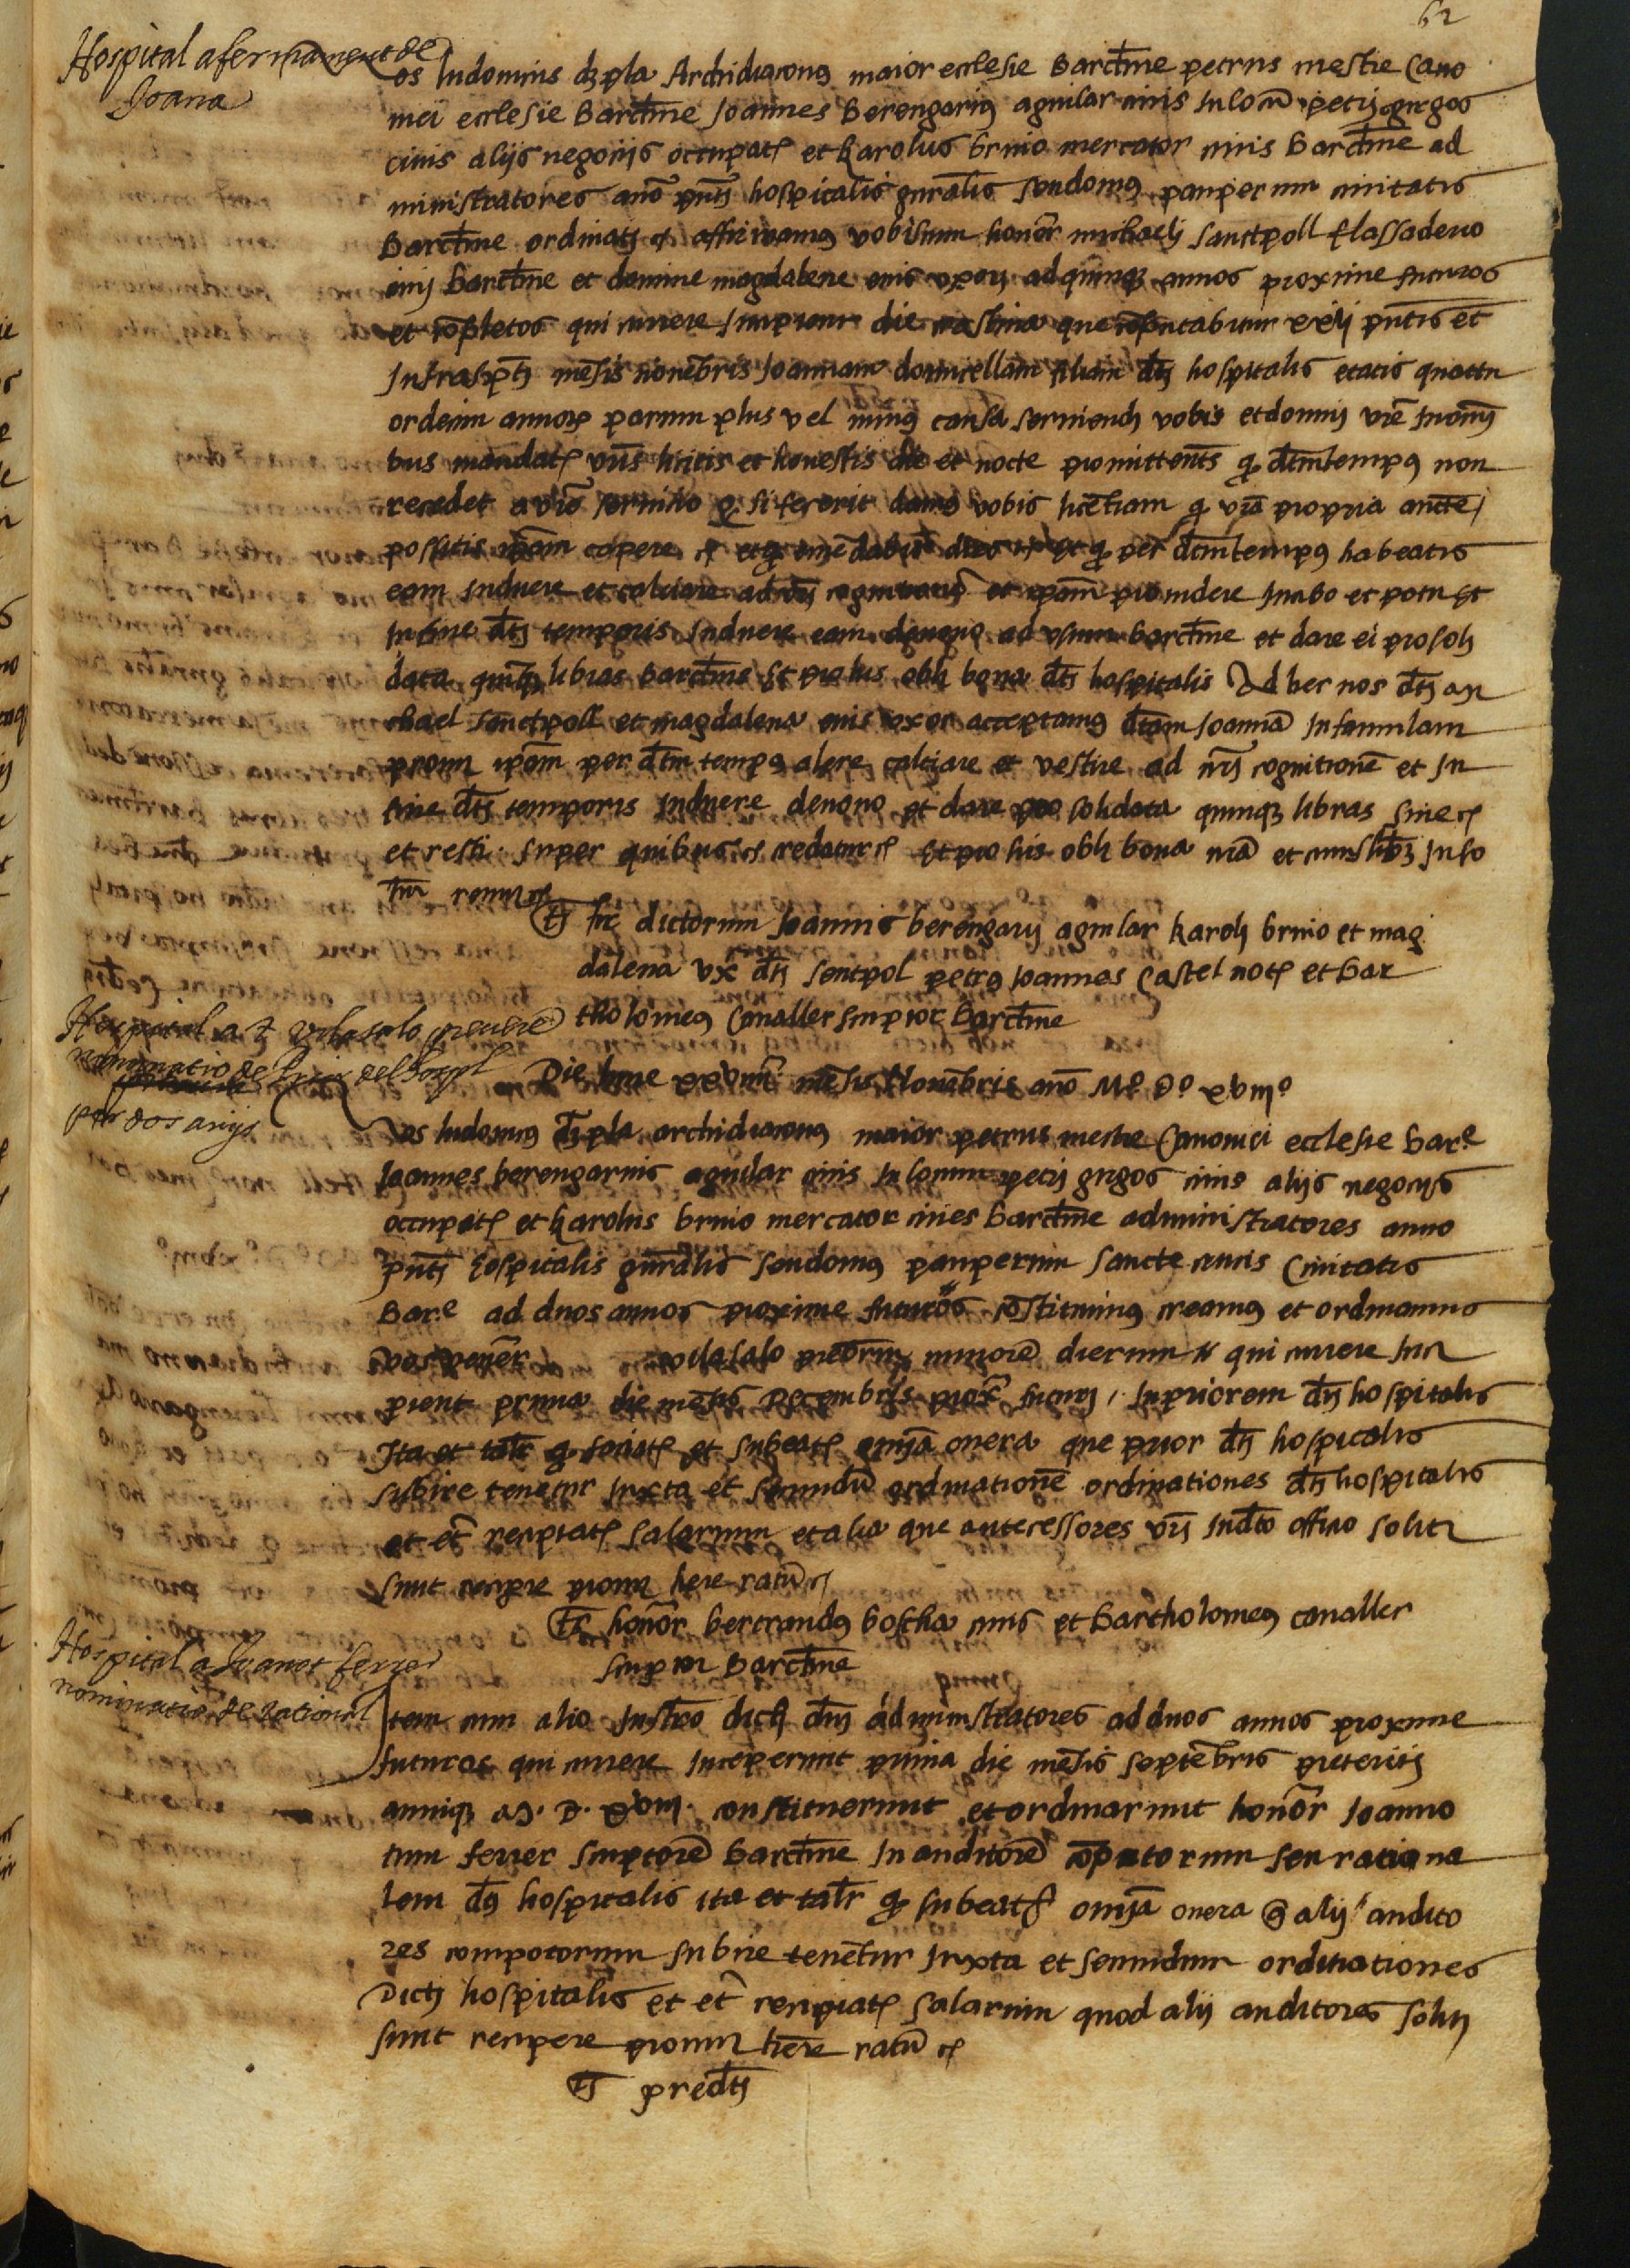 62
Hospital afermament de
Joana
os ludovicus dz pla Archidiaconus maior ecclesie Barcħne petrus mestre Cano
nici ecclesie Barcħne Joannes Berengarius aguilar civis In locum petri grigos
civis alijs negocijs occupati et karolus bruio mercator civis Barcħne ad
ministratores año pñtj hospitalis gñralis seu domus pauperum civitatis
Barcħne ordinatj et affirmamus vobiscum honor michaelj sanctpoll flassadero
civj Barcħne et domine magdalene eius uxorj ad quinqz annos proxime futuros
et cōpletos qui currere Incipient die crastina que cōputabitur xxij pñtis et
Infrascptj mesis novēbris Joannam domicellam filiam dtj hospitalis etatis quattu
ordecim annorum parum plus vel minus causa serviendj vobis et domuj vre In omnj
bus mandatis vris licitis et honestis die et nocte promittentes q dtm tempus non
recedet a vro servicio q si fecerit damus vobis licētiam q vra propria aucte
possitis ipam capere et q emēdabit dies et q per dtm tempus habeatis
eam Induere et calciare ad vrj cognicionē et ipam providere In cibo et potu et
In fine dtj temporis Induere eam de novo ad usum barcħne et dare ei pro soli
data quinqz libras barcħne Et pro his obli bona dtj hospitalis Ad hec nos dtj mi
chael sanctpoll et magdalena eius uxor acceptamus dtam Joannā In famulam
promi ipam per dtm tempus alere calciare et vestire ad nrj cognitionē et In
fine dtj temporis Induere de novo et dare pro solidata quinqz libras sine
et resti. super quibus credatur Et pro his obli bona nrā et cuiuslibz Inso
lm renun
Ts hr dictorum Joannis berengarij aguilar karolj bruio et mag
dalena ux dtj sentpol petrus Joannes Castel not et bar
tholomeus Cavaller scriptor Barcħne
Hospital a vilasalo prevere
nominatio de Prior del hospl
per dos anys
Die lune xxviiij mesis Novēbris año Mº Dº xviijº
Nos ludovicus dz pla archidiaconus maior petrus mestre Canonici ecclesie barª
Joannes berengarius aguilar civis In locum petrj grigos civis alijs negocijs
occupati et karolus bruio mercator cives barcħne administratores anno
pñtj hospitalis gñralis seu domus pauperum sancte crucis Civitatis
Barª ad duos annos proxime futuros cōstituimus creamus et ordinamus
vos vener vilasalo prebrm minorē dierum qui currere Inci
pient prima die mesis Decembris prox futurj In priorem dtj hospitalis
Ita et talr q faciatis et subeatis omia onera que prior dtj hospitalis
subire tenetur Iuxta et secundū ordinationē ordinationes dtj hospitalis
et et recipiatis salarium et alia que antecessores vrj In dto officio soliti
sunt recipere promi here ratū
Ts honor bertrandus boscha civis et Bartholomeus cavaller
scriptor Barcħne
Hospital a Joanot ferrer
nominatio de racional
Item cum alio Instro dictj dnj administratores ad duos annos proxime
futuros qui currere Inceperunt prima die mesis septēbris preteritj
anniqz M. D. xviij. constituerunt et ordinarunt honor Joanno
tum ferrer scriptorē Barcħne In auditorē cōputorum seu rationa
lem dtj hospitalis ita et talr q subeatis omia onera q alij audito
res compotorum subire tenētur Iuxta et secundum ordinationes
Dictj hospitalis et et recipiatis salarium quod alij auditores solitj
sunt recipere promi here ratū
Ts predtj